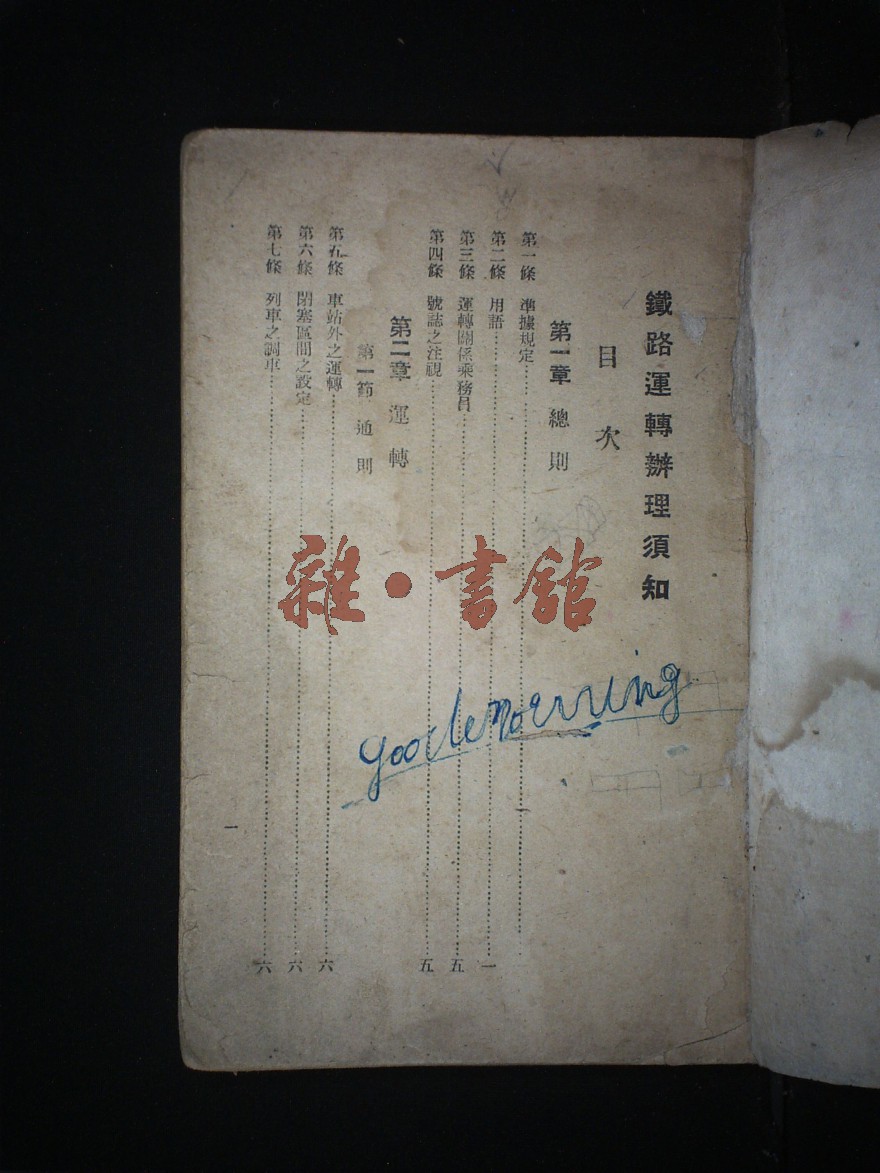 鐵路運轉辦理須知
目次
第一章 總則
第一條 準據規定
第二條 用語 一
第三條 運轉關係乘務員 五
第四條 號誌之注視 五
第二章 運轉
第一節 通則
第五條 車站外之運轉 六
第六條 閉塞區間之設定 六
第七條 列車之調車 六
一
雜·書館
goodemorning